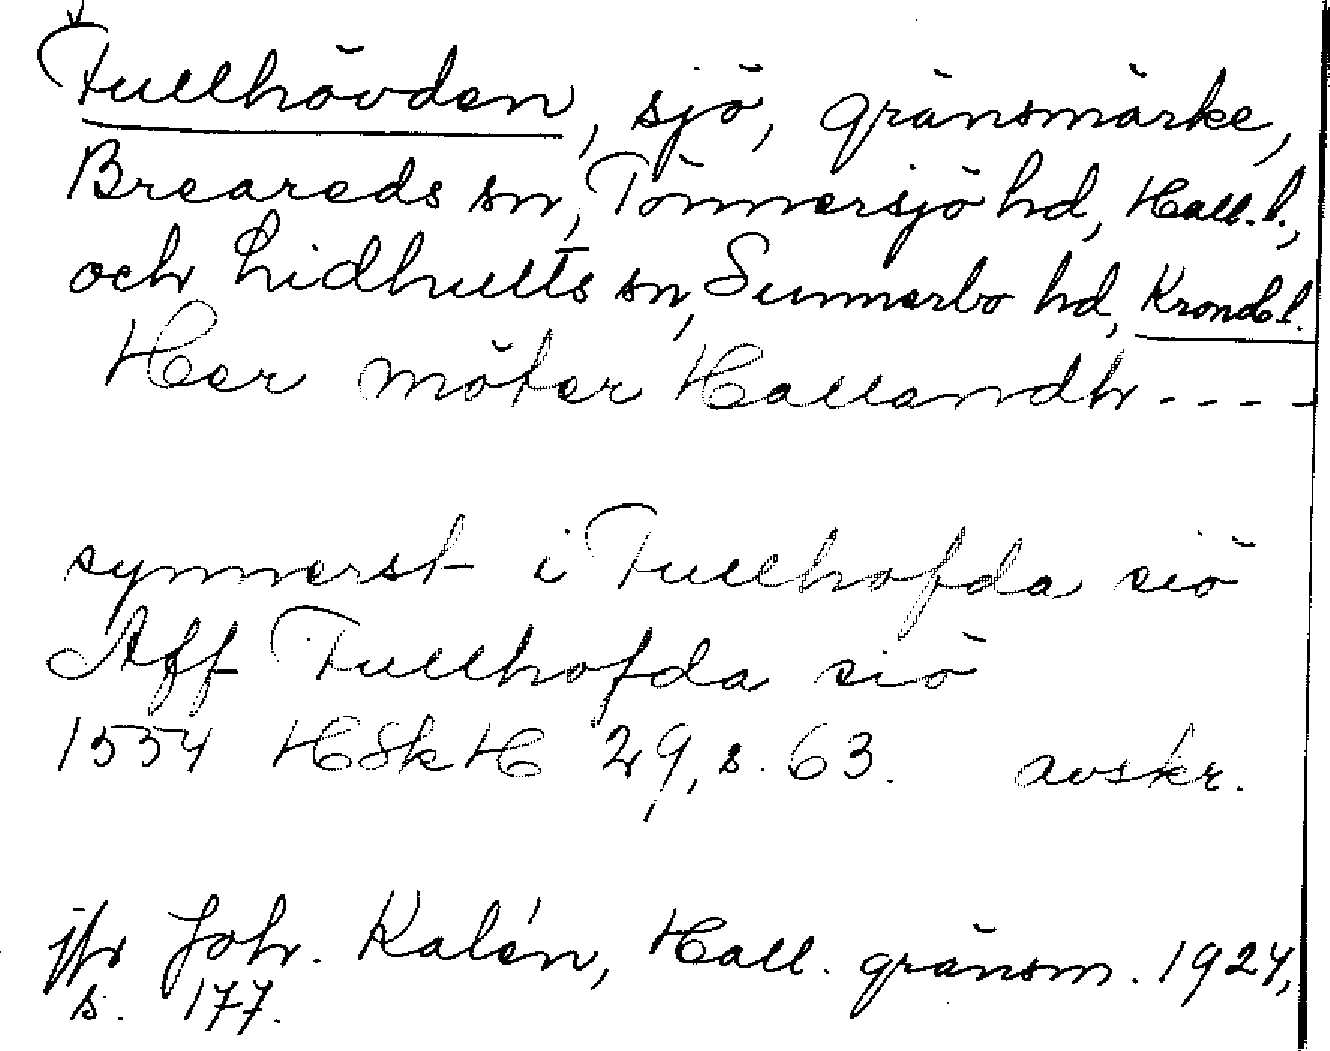 Fullhövden, sjö, gränsmärke,
Breareds sn, Tönnersjö hd, Hall. l.,
och Lidhults sn, Sunnerbo hd, Kronob. l.
Her möter Hallandh ----
synnerst i Fullhofda siö
Aff Fullhofda siö
1554 HSkH 29, s. 63. avskr.
jfr Joh. Kalén, Hall. gränsm. 1924,
s. 177.